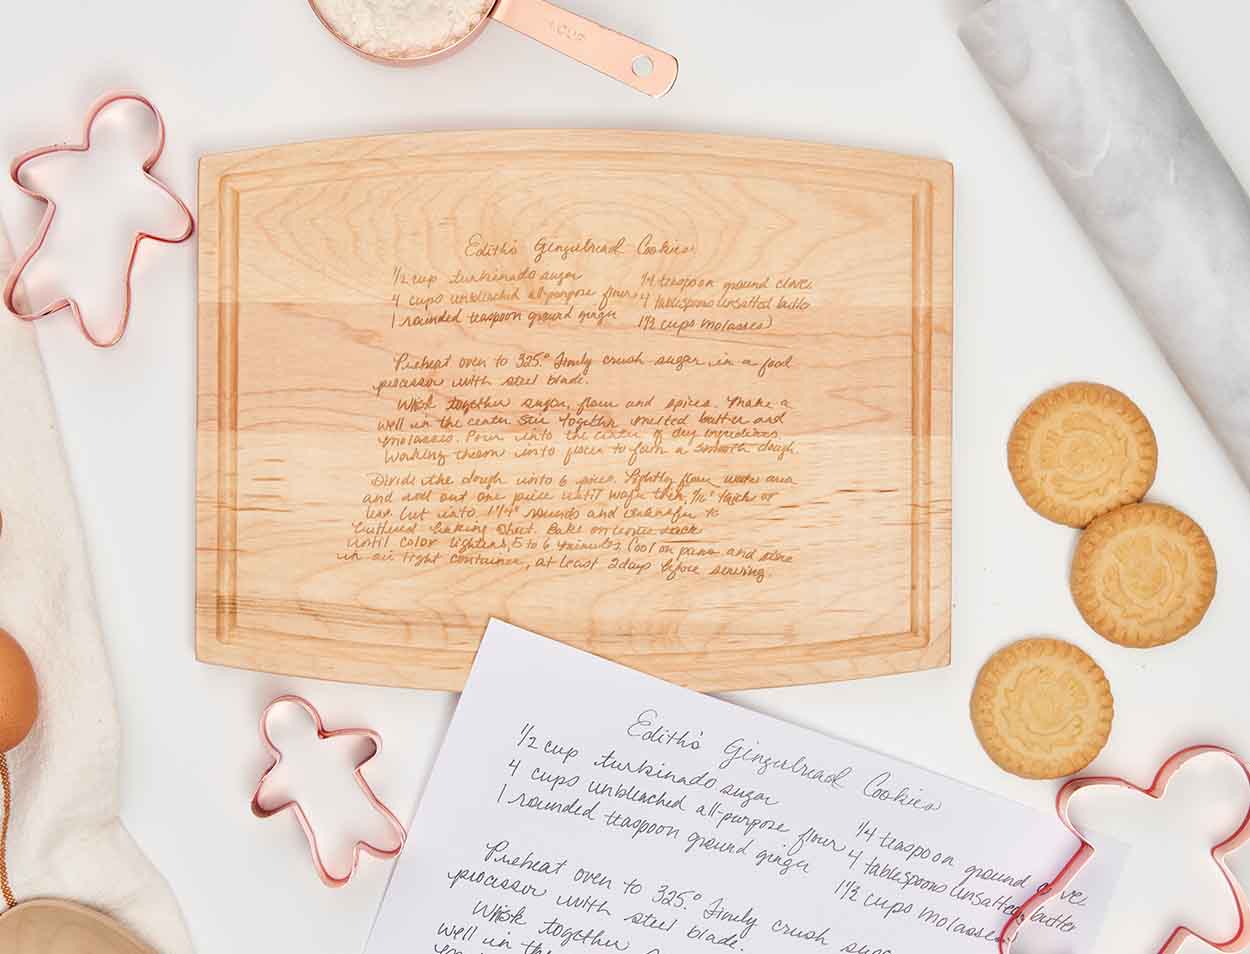 1 CUP
Edith's Gingerbread Cookies
1/2 cup turbinado sugar
4 cups unbleached all-purpose flour
1 rounded teaspoon ground ginger
1/4 teaspoon ground cloves
4 tablespoons unsalted butter
1 1/2 cups molasses
Preheat oven to 325.° Finely crush sugar in a food
processor with steel blade.
Whisk together sugar, flour and spices. Make a
well in the center. Stir together melted butter and
molasses. Pour into the center of dry ingredients
working them into flour to form a smooth dough.
Divide the dough into 6 pieces. Lightly flour work area
and roll out one piece until wafer thin, 1/16" thick or
less. Cut into 1 1/4" rounds and transfer to
buttered baking sheet. Bake on center rack
until color lightens, 5 to 6 minutes. Cool on pans and store
in air tight container, at least 2 days before serving.
Edith's Gingerbread Cookies
1/2 cup turbinado sugar
4 cups unbleached all-purpose flour
1 rounded teaspoon ground ginger
1/4 teaspoon ground
4 tablespoons unsalted butter
1 1/2 cups molasses
Preheat oven to 325.° Finely crush
processor with steel blade.
Whisk together
well in the